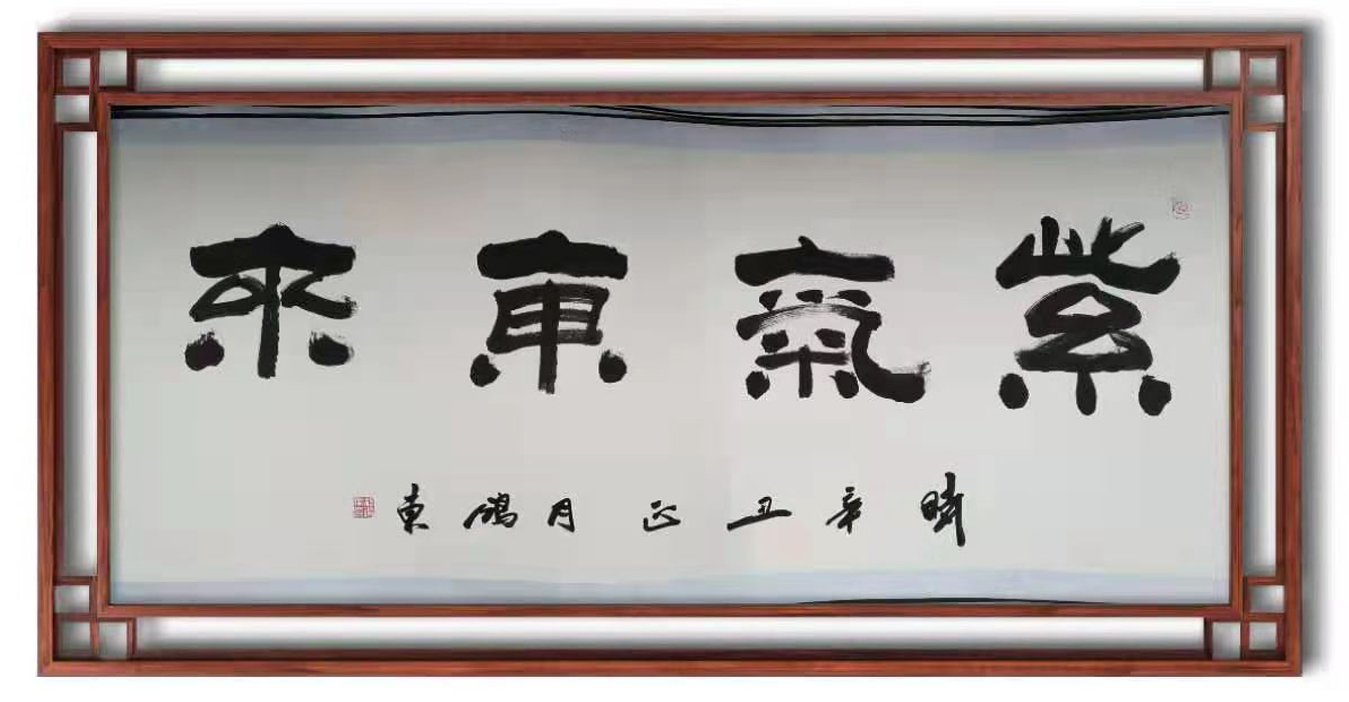 紫氣東來
時辛丑正月鴻東